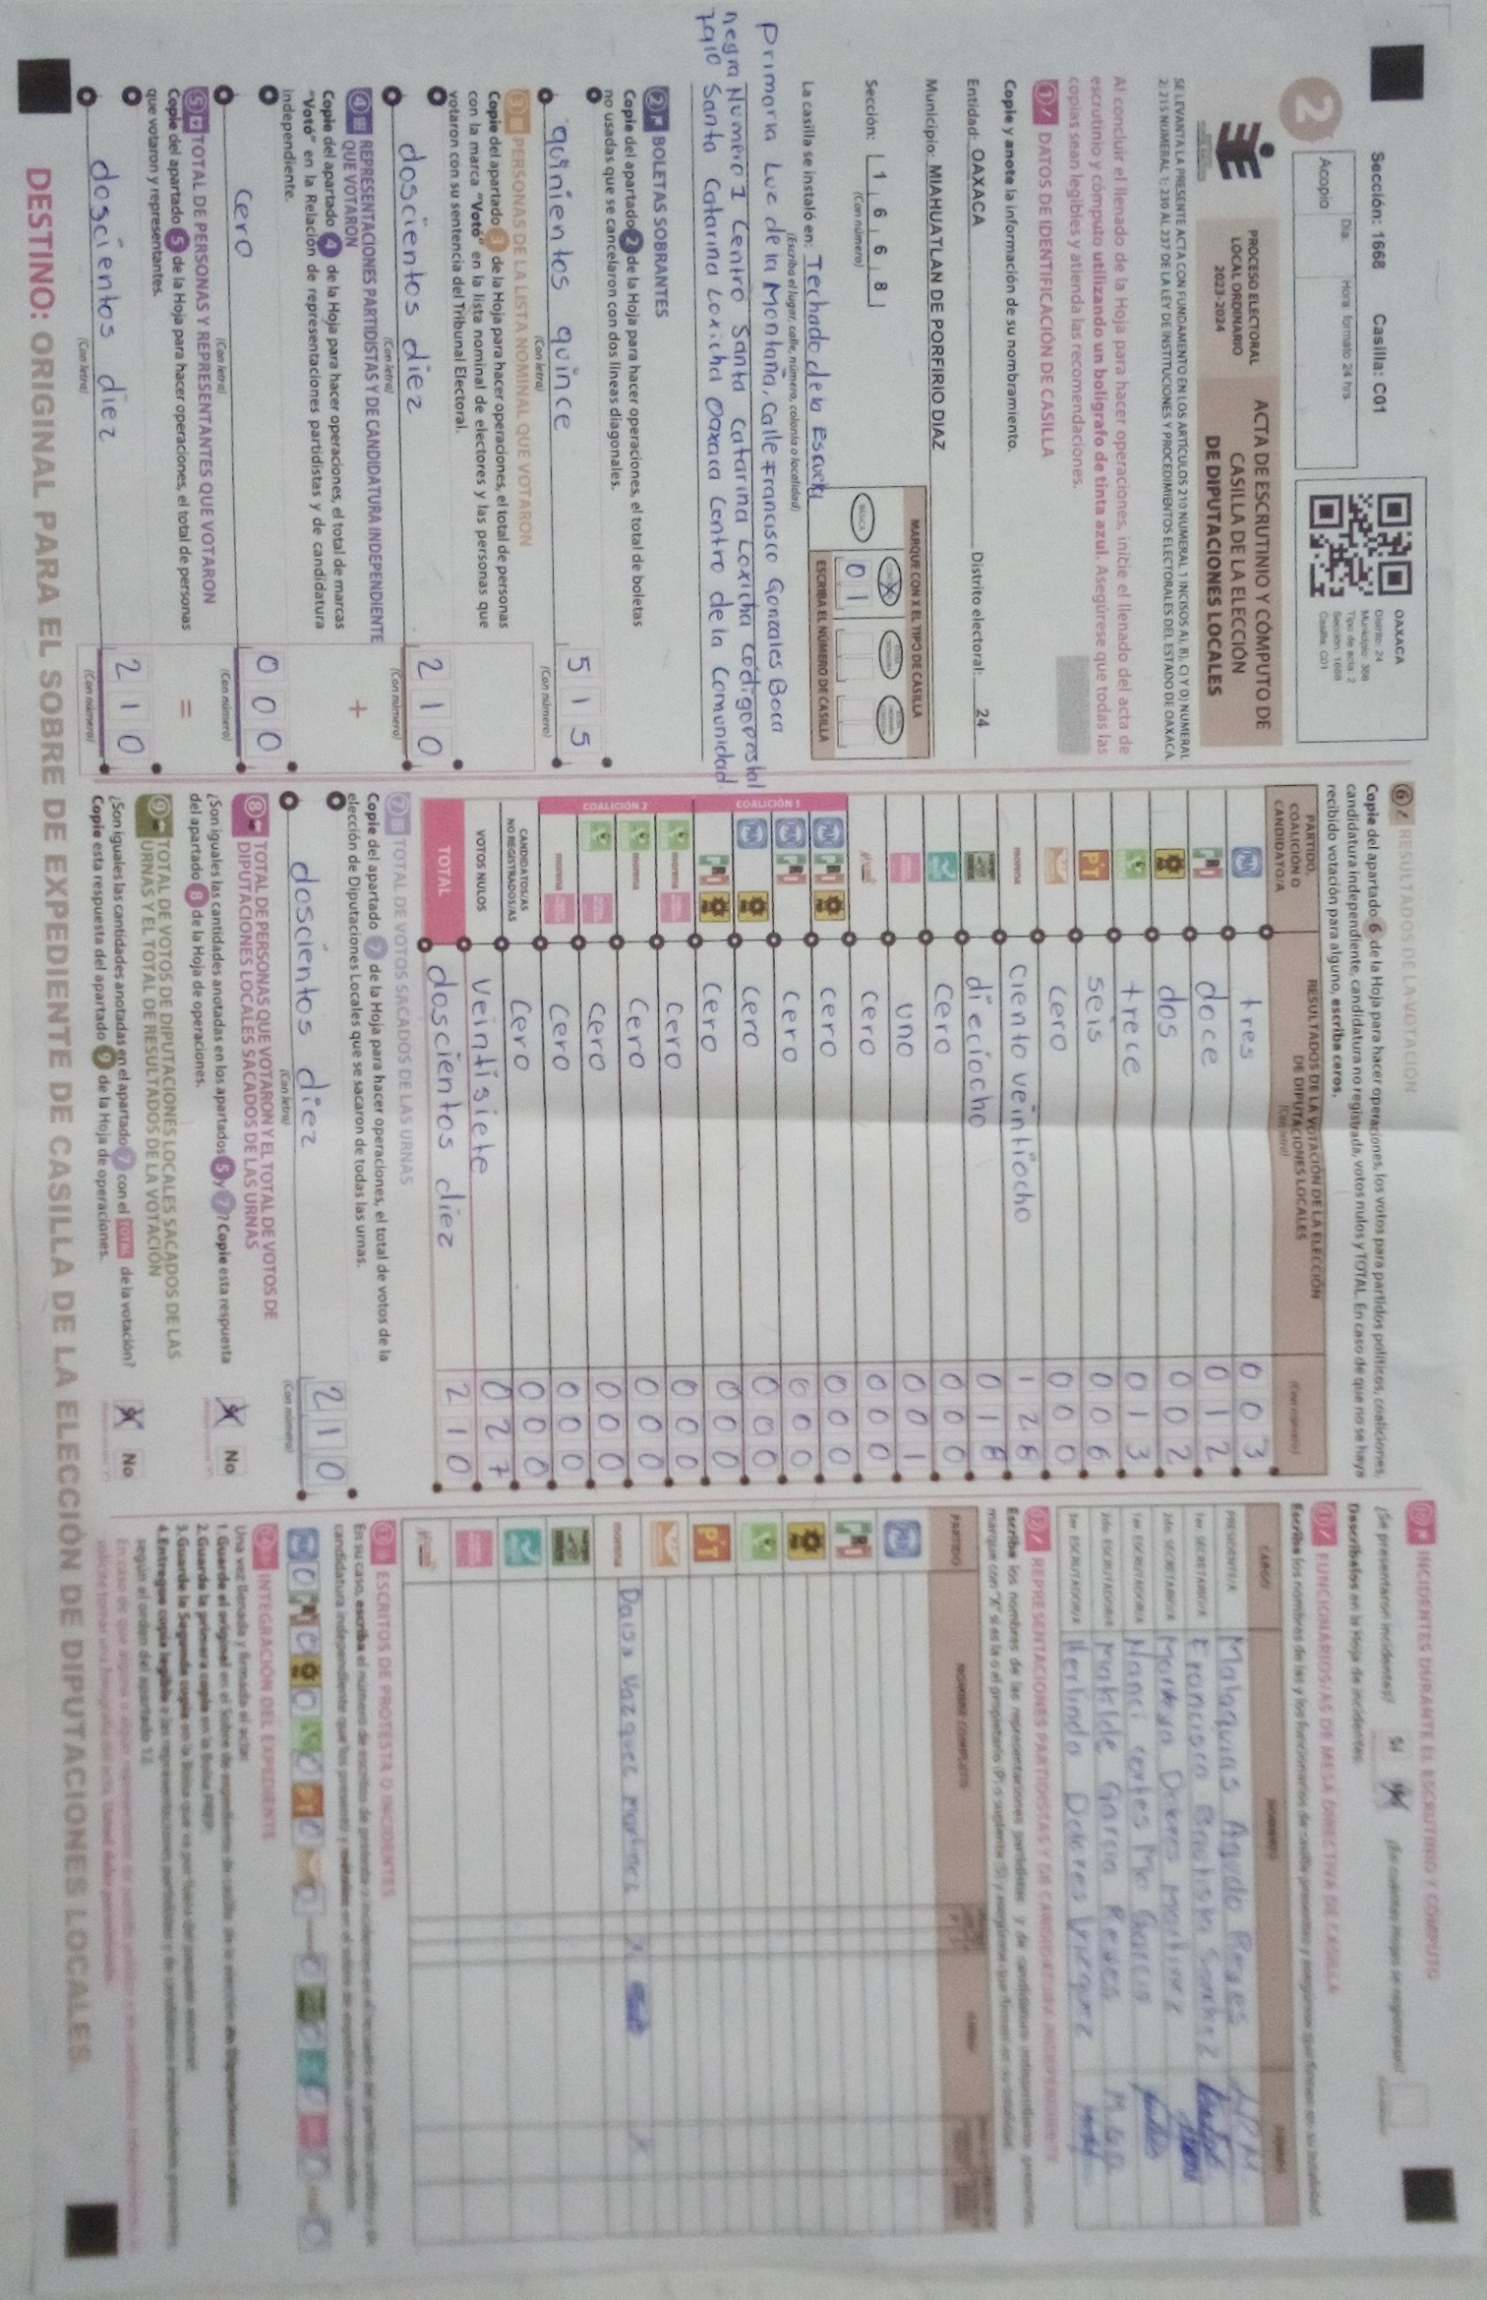 Sección: 1668 Casilla: C01
Día Hora formato 24 hrs
Acopio
2
OAXACA
Distrito: 24
Municipio: 308
Tipo de acta: 2
Sección: 1668
Casilla: C01
PROCESO ELECTORAL
LOCAL ORDINARIO
2023-2024
ACTA DE ESCRUTINIO Y CÓMPUTO DE
CASILLA DE LA ELECCIÓN
DE DIPUTACIONES LOCALES
SE LEVANTA LA PRESENTE ACTA CON FUNDAMENTO EN LOS ARTÍCULOS 210 NUMERAL 1 INCISOS A), B), C) Y D) NUMERAL
2; 215 NUMERAL 1; 230 AL 237 DE LA LEY DE INSTITUCIONES Y PROCEDIMIENTOS ELECTORALES DEL ESTADO DE OAXACA
Al concluir el llenado de la Hoja para hacer operaciones, inicie el llenado del acta de
escrutinio y cómputo utilizando un bolígrafo de tinta azul. Asegúrese que todas las
copias sean legibles y atienda las recomendaciones.
1 DATOS DE IDENTIFICACIÓN DE CASILLA
Copie y anote la información de su nombramiento.
Entidad: OAXACA Distrito electoral: 24
Municipio: MIAHUATLAN DE PORFIRIO DIAZ
MARQUE CON X EL TIPO DE CASILLA
Sección: 1 6 6 8
(Con número)
BÁSICA X
0 1
ESCRIBA EL NÚMERO DE CASILLA
La casilla se instaló en: Techado de la Escuela
(Escriba el lugar, calle, número, colonia o localidad)
Primaria Luz de la Montaña, Calle Francisco Gonzales Boca
negra Numero 1 Centro Santa Catarina Loxicha Codigo Postal
Santa Catarina Loxicha Oaxaca Centro de la Comunidad
2 BOLETAS SOBRANTES
Copie del apartado 2 de la Hoja para hacer operaciones, el total de boletas
no usadas que se cancelaron con dos líneas diagonales.
quinientos quince 5 1 5
(Con letra) (Con número)
3 PERSONAS DE LA LISTA NOMINAL QUE VOTARON
Copie del apartado 3 de la Hoja para hacer operaciones, el total de personas
con la marca "Votó" en la lista nominal de electores y las personas que
votaron con su sentencia del Tribunal Electoral.
doscientos diez 2 1 0
(Con letra) (Con número)
4 REPRESENTACIONES PARTIDISTAS Y DE CANDIDATURA INDEPENDIENTE
QUE VOTARON
+
Copie del apartado 4 de la Hoja para hacer operaciones, el total de marcas
"Votó" en la Relación de representaciones partidistas y de candidatura
independiente.
cero 0 0 0
(Con letra) (Con número)
5 TOTAL DE PERSONAS Y REPRESENTANTES QUE VOTARON
=
Copie del apartado 5 de la Hoja para hacer operaciones, el total de personas
que votaron y representantes.
doscientos diez 2 1 0
(Con letra) (Con número)
6 RESULTADOS DE LA VOTACIÓN
Copie del apartado 6 de la Hoja para hacer operaciones, los votos para partidos políticos, coaliciones,
candidatura independiente, candidatura no registrada, votos nulos y TOTAL. En caso de que no se haya
recibido votación para alguno, escriba ceros.
PARTIDO, COALICIÓN O CANDIDATO/A
RESULTADOS DE LA VOTACIÓN DE LA ELECCIÓN
DE DIPUTACIONES LOCALES
(Con letra) (Con número)
PAN tres 0 0 3
PRI doce 0 1 2
PRD dos 0 0 2
trece 0 1 3
PT seis 0 0 6
cero 0 0 0
morena ciento veintiocho 1 2 8
dieciocho 0 1 8
cero 0 0 0
uno 0 0 1
cero 0 0 0
COALICIÓN 1
PAN PRI PRD cero 0 0 0
PAN PRI cero 0 0 0
PAN PRD cero 0 0 0
PRI PRD cero 0 0 0
COALICIÓN 2
morena cero 0 0 0
morena cero 0 0 0
cero 0 0 0
morena cero 0 0 0
CANDIDATOS/AS
NO REGISTRADOS/AS cero 0 0 0
VOTOS NULOS veintisiete 0 2 7
TOTAL doscientos diez 2 1 0
7 TOTAL DE VOTOS SACADOS DE LAS URNAS
Copie del apartado 7 de la Hoja para hacer operaciones, el total de votos de la
elección de Diputaciones Locales que se sacaron de todas las urnas.
doscientos diez 2 1 0
(Con letra) (Con número)
8 TOTAL DE PERSONAS QUE VOTARON Y EL TOTAL DE VOTOS DE
DIPUTACIONES LOCALES SACADOS DE LAS URNAS
¿Son iguales las cantidades anotadas en los apartados 5 y 7? Copie esta respuesta
del apartado 8 de la Hoja de operaciones.
X No
9 TOTAL DE VOTOS DE DIPUTACIONES LOCALES SACADOS DE LAS
URNAS Y EL TOTAL DE RESULTADOS DE LA VOTACIÓN
¿Son iguales las cantidades anotadas en el apartado 7 con el TOTAL de la votación?
Copie esta respuesta del apartado 9 de la Hoja de operaciones.
X No
10 INCIDENTES DURANTE EL ESCRUTINIO Y CÓMPUTO
¿Se presentaron incidentes? Sí
Descríbalos en la Hoja de incidentes.
11 FUNCIONARIOS/AS DE MESA DIRECTIVA DE CASILLA
Escriba los nombres de las y los funcionarios de casilla presentes y asegúrese que firmen en su totalidad.
CARGO NOMBRES FIRMAS
PRESIDENTE/A Malaquias Agudo Reyes
1er. SECRETARIO/A Francisca Bautista Sanchez
2do. SECRETARIO/A Dolores Martinez
1er. ESCRUTADOR/A Nanci Cortes Garcia
2do. ESCRUTADOR/A Matilde Garcia Reyes
3er. ESCRUTADOR/A Herlinda Dolores Vasquez
12 REPRESENTACIONES PARTIDISTAS Y DE CANDIDATURA INDEPENDIENTE
Escriba los nombres de las representaciones partidistas y de candidatura independiente presentes,
PARTIDO NOMBRE COMPLETO
PAN
PRI
PRD
PT
morena Daisa Vazquez Martinez X
13 ESCRITOS DE PROTESTA O INCIDENTES
14 INTEGRACIÓN DEL EXPEDIENTE
Una vez llenada y firmada el acta:
1. Guarde el original en el Sobre de expediente de casilla de la elección de Diputaciones Locales.
4. Entregue copia legible a las representaciones partidistas y de candidatura independiente presentes,
según el orden del apartado 12.
DESTINO: ORIGINAL PARA EL SOBRE DE EXPEDIENTE DE CASILLA DE LA ELECCIÓN DE DIPUTACIONES LOCALES.